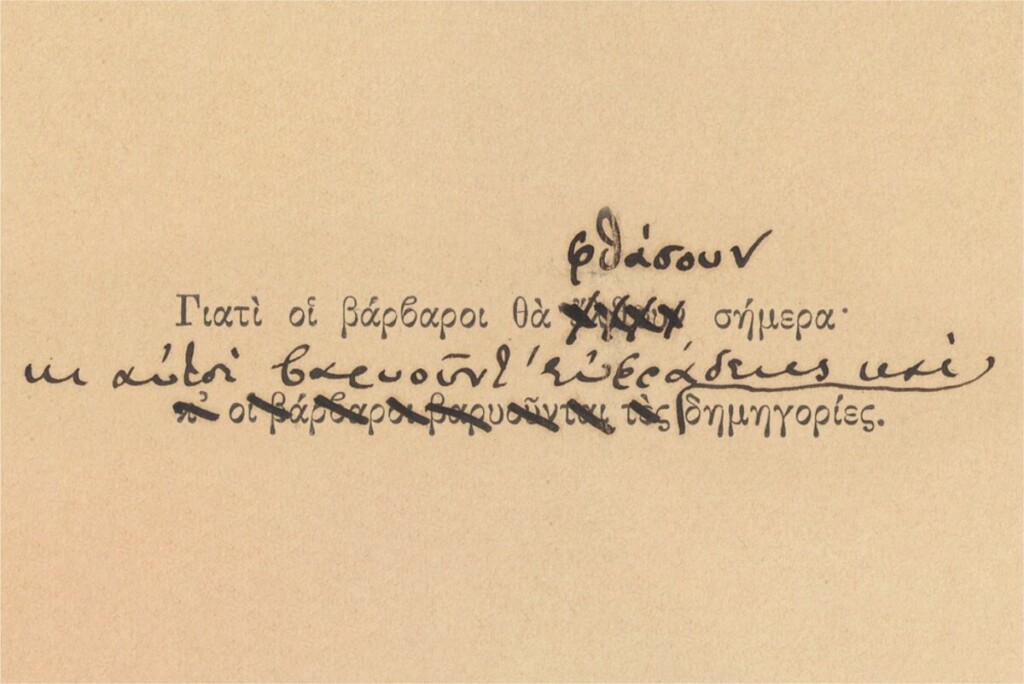 φθάσουν
Γιατὶ οἱ βάρβαροι θὰ σήμερα·
κι αὐτοὶ βαρυοῦντ’ εὐφράδειες καὶ
κ’ οἱ βάρβαροι βαρυοῦνται τὲς δημηγορίες.